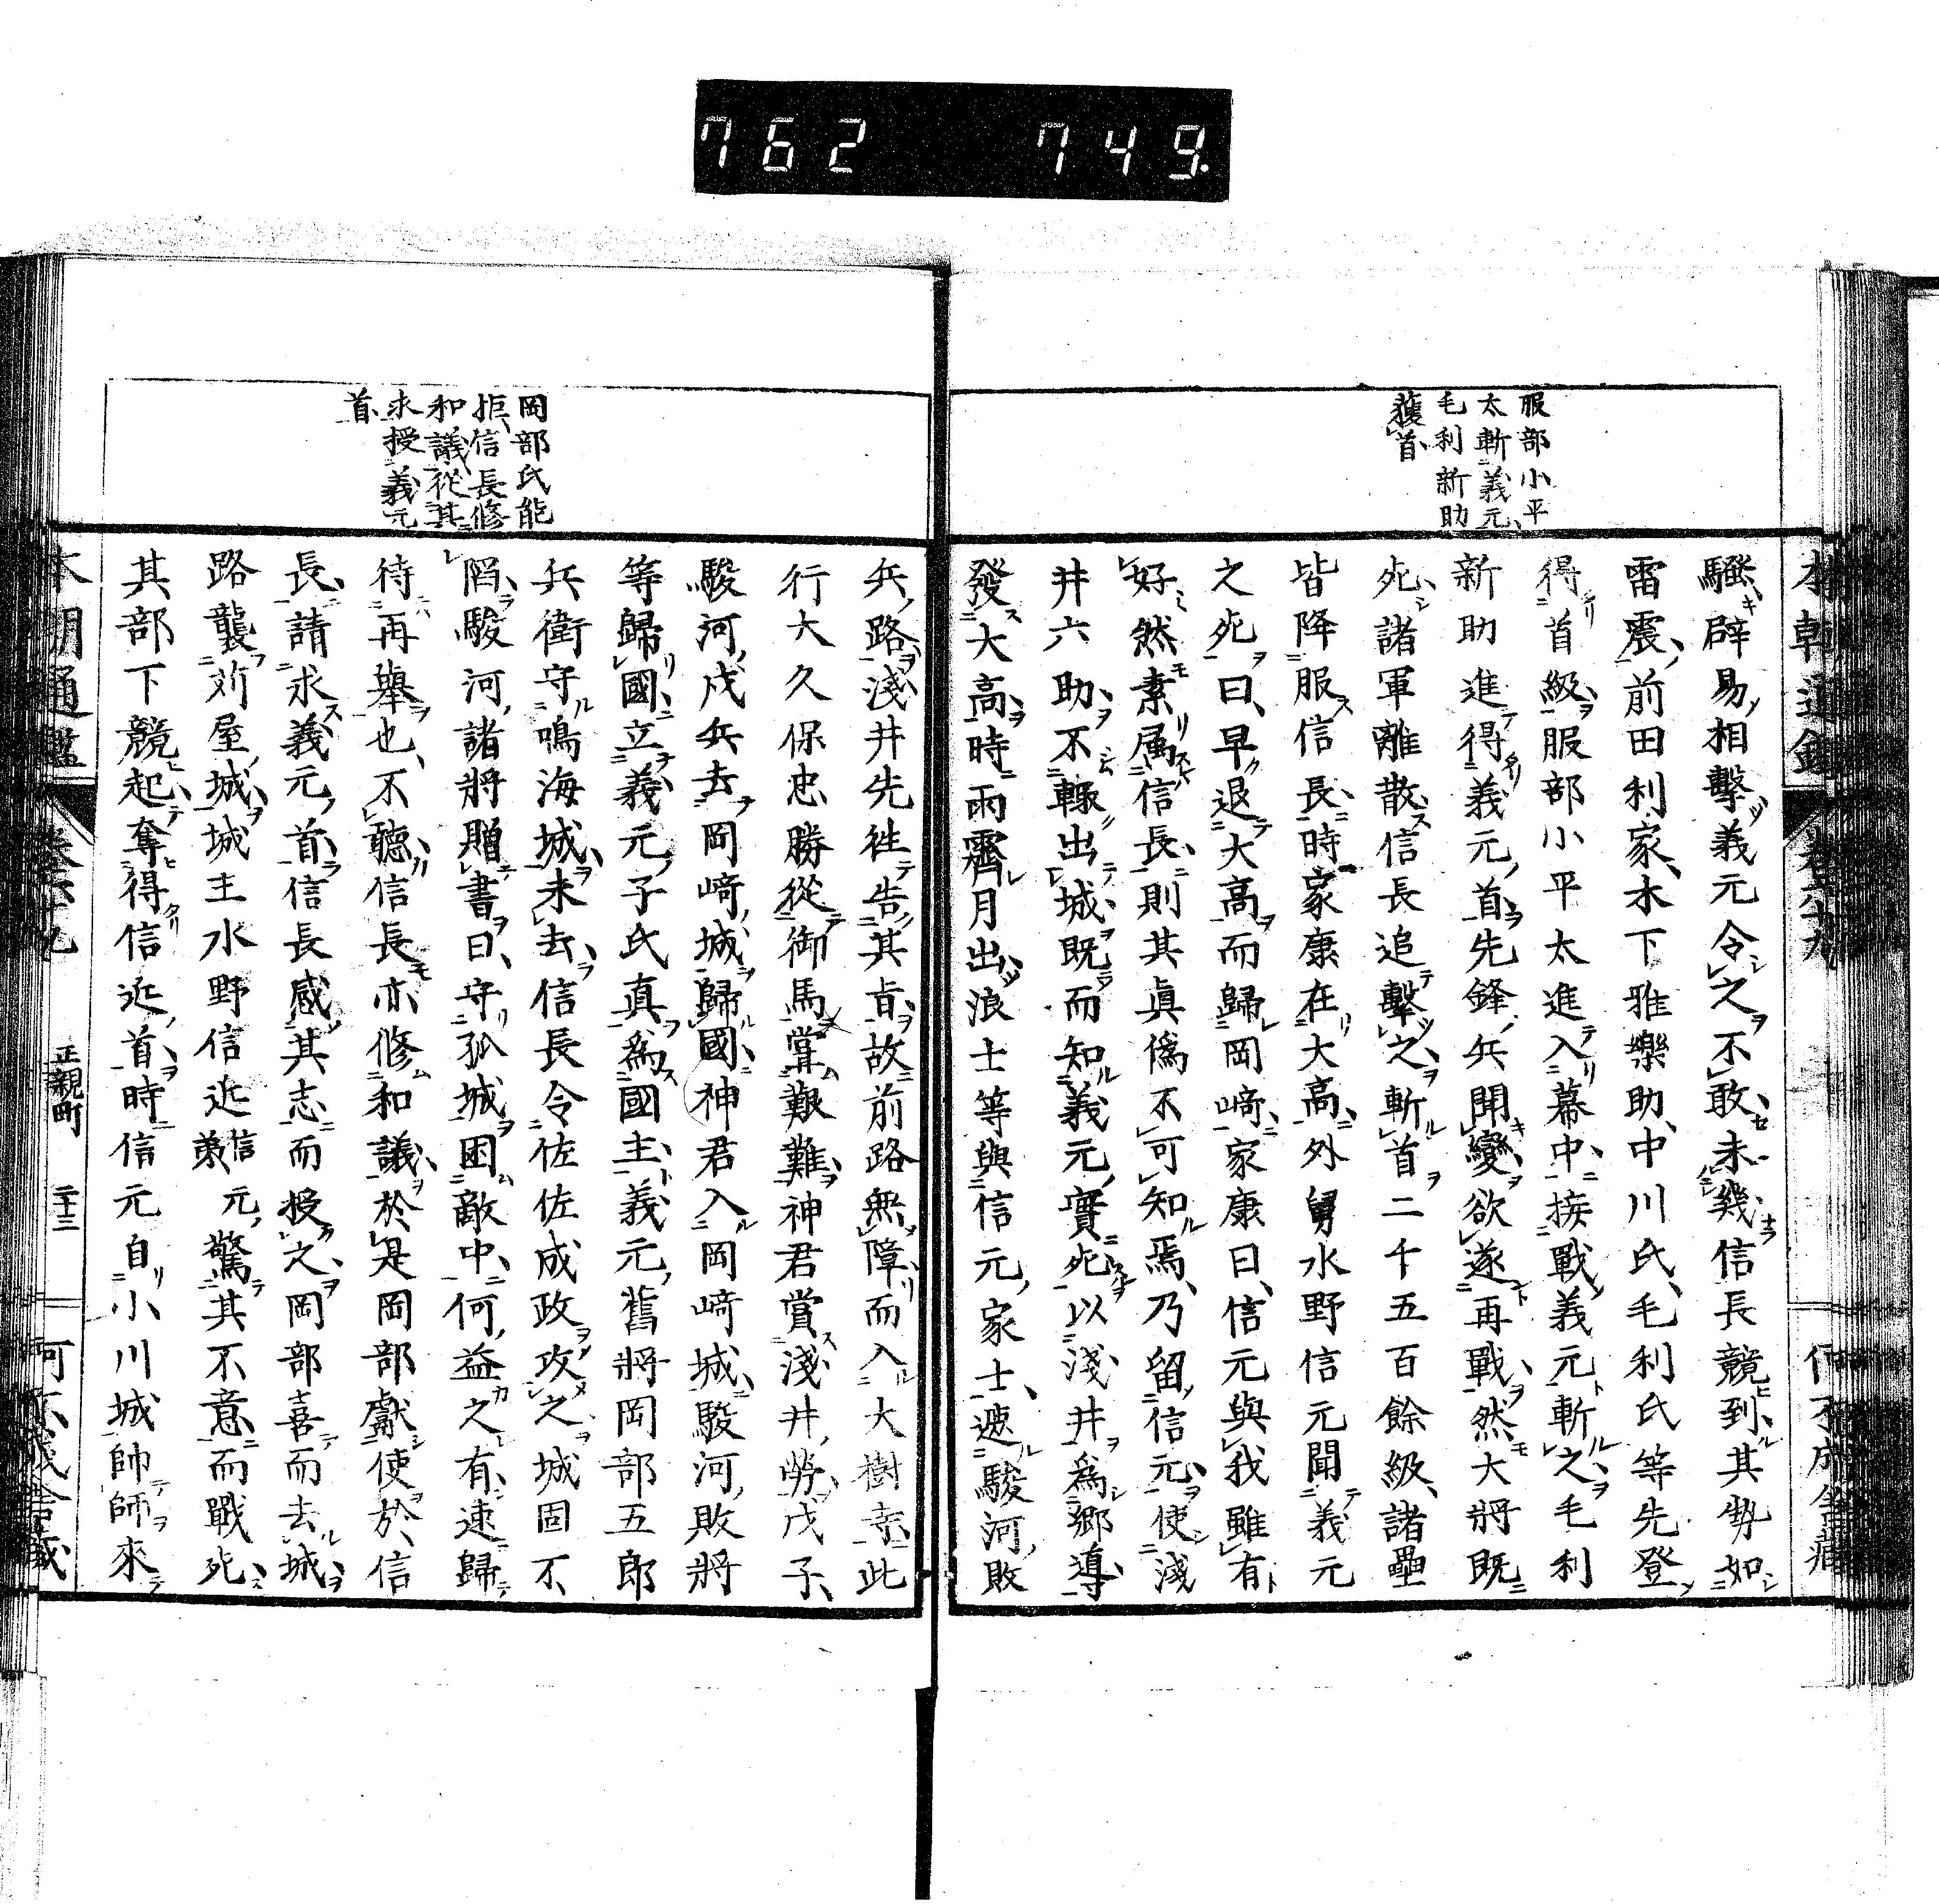 762 749.
服部小平
太斬義元
毛利新助
獲首
騷辟易相擊義元令之不敢未幾信長競到其勢如
雷震前田利家木下雅樂助中川氏毛利氏等先登
得首級服部小平太進入幕中接戰義元斬之毛利
新助進得義元首先鋒兵聞變欲遂再戰然大將既
死諸軍離散信長追擊之斬首二千五百餘級諸壘
皆降服信長時家康在大高外舅水野信元聞義元
之死曰早退大高而歸岡﨑家康曰信元與我雖有
好然素属信長則其眞僞不可知焉乃留信元使淺
井六助不輙出城既而知義元實死以淺井爲鄉導
發大高時雨霽月出浪士等與信元家士遮駿河敗
岡部氏能
拒信長修
和議從其
求授義元
首
兵路淺井先往告其旨故前路無障而入大樹寺此
行大久保忠勝從御馬嘗艱難神君賞淺井勞戊子
駿河戍兵去岡﨑城歸國神君入岡﨑城駿河敗將
等歸國立義元子氏真爲國主義元舊將岡部五郎
兵衛守鳴海城未去信長令佐佐成政攻之城固不
陷駿河諸將贈書曰守孤城困敵中何益之有速歸
待再舉也不聽信長亦修和議於是岡部獻使於信
長請求義元首信長感其志而授之岡部喜而去城
路襲苅屋城城主水野信近信元弟驚其不意而戰死
其部下競起奪得信近首時信元自小川城帥師來
本朝通鑑 卷六十九 正親町 二十三